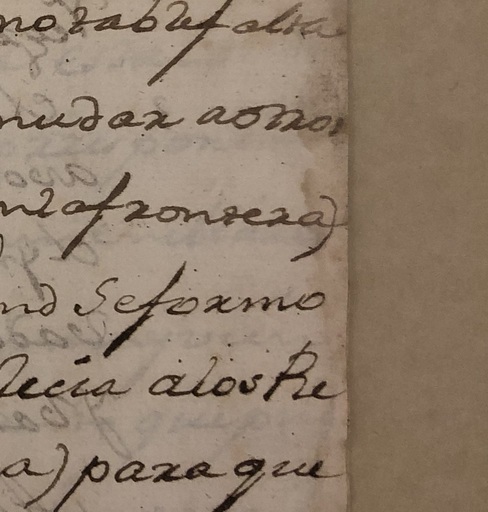 notable falta
mudar aotros
nta frontera)
nd Seformo
lecia alos Re
a) para que